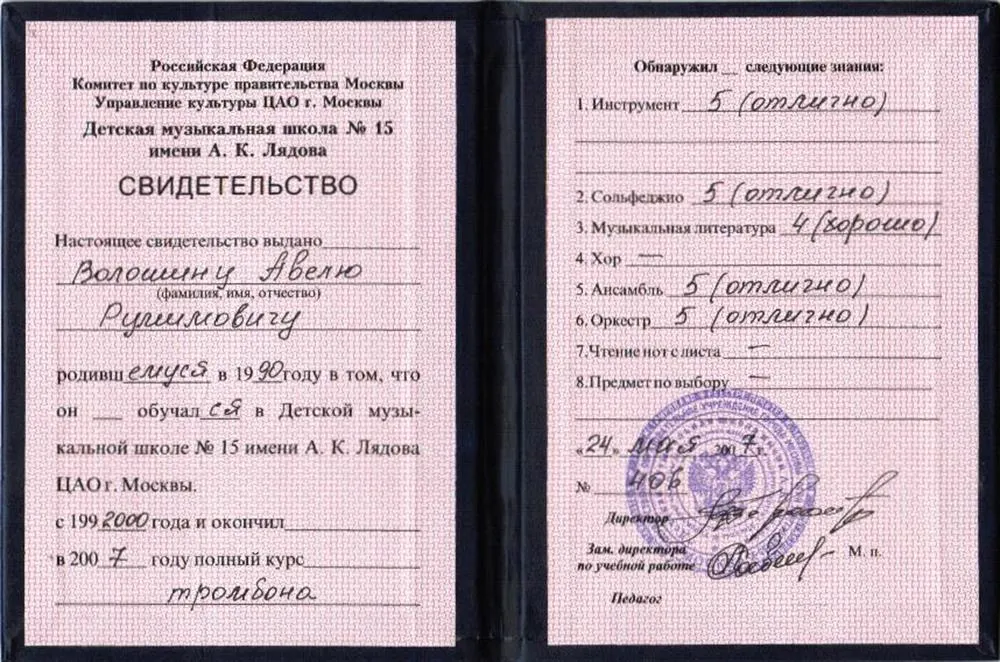 Российская Федерация
Комитет по культуре правительства Москвы
Управление культуры ЦАО г. Москвы
Детская музыкальная школа № 15
имени А. К. Лядова
СВИДЕТЕЛЬСТВО
Настоящее свидетельство выдано
Волошину Авелю
(фамилия, имя, отчество)
Румимовичу
родивш емуся в 19 90 году в том, что
он обучал ся в Детской музы-
кальной школе № 15 имени А. К. Лядова
ЦАО г. Москвы.
с 199 2000 года и окончил
в 200 7 году полный курс
тромбона
Обнаружил следующие знания:
1. Инструмент 5 (отлично)
2. Сольфеджио 5 (отлично)
3. Музыкальная литература 4 (хорошо)
4. Хор —
5. Ансамбль 5 (отлично)
6. Оркестр 5 (отлично)
7. Чтение нот с листа —
8. Предмет по выбору —
«24» мая 200 7 г.
№ 40в
Директор
Зам. директора
по учебной работе М. п.
Педагог